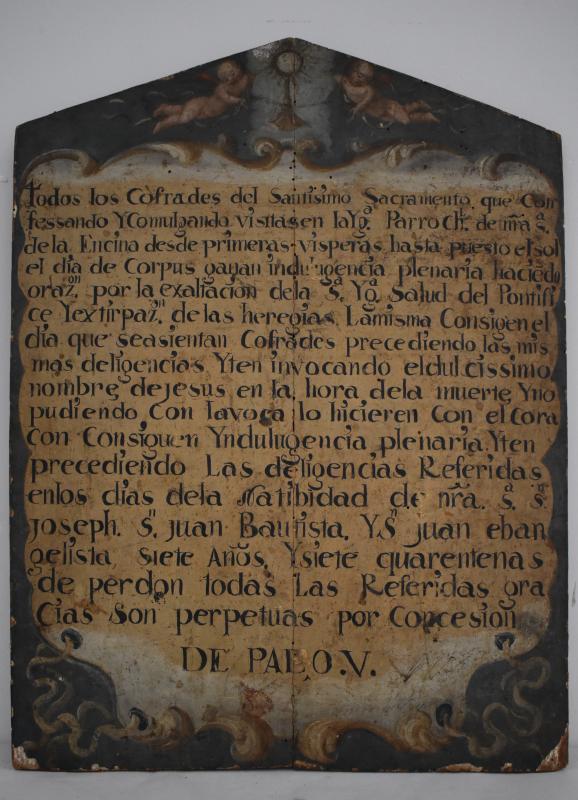 Todos los Cofrades del Santisimo Sacramento, que Con
fessando Y Comulgando visitasen la Yg.ª Parroch.l de nr̃a S.ª
de la Encina desde primeras visperas hasta puesto el sol
el dia de Corpus ganan indulgencia plenaria haciedo
oraz.n por la exaltacion de la S.ª Yg.ª Salud del Pontifi
ce Y extirpaz.n de las heregias. La misma Consigen el
dia que se asientan Cofrades precediendo las mis
mas deligencias Yten invocando el dulcissimo
nombre de jesus en la hora de la muerte Y no
pudiendo Con la voca lo hicieren Con el Cora
con Consiguen Yndulugencia plenaria. Yten
precediendo Las deligencias Referidas
en los dias de la Natibidad de nr̃a. S.ª S.n
joseph. S.n juan Bautista. Y S.n juan eban
gelista, siete Años, Y siete quarentenas
de perdon todas Las Referidas gra
Cias Son perpetuas por Concesion
DE PABLO.V.